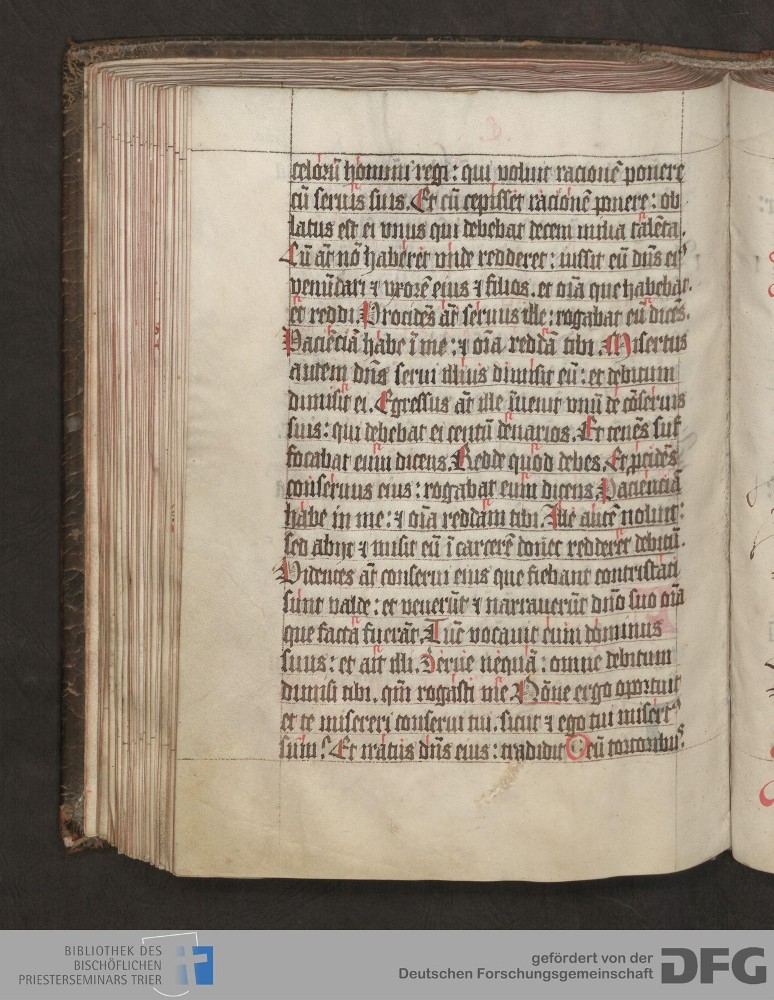 celorū homini regi: qui voluit racionē ponere
cū seruis suis. Et cū cepisset racionē ponere: ob
latus est ei vnus qui debebat decem milia talēta.
Cū aūt nō haberet vnde redderet: iussit eū dn̄s eiꝰ
venūdari ⁊ vxorē eius ⁊ filios. et oīa que habebat.
et reddi. Procidēs aūt seruus ille: rogabat eū dicēs.
Paciēciā habe ī me: ⁊ oīa reddā tibi. Misertus
autem dn̄s serui illius dimisit eū: et debitum
dimisit ei. Egressus aūt ille īuenit vnū de cōseruis
suis: qui debebat ei centū denarios. Et tenēs suf
focabat eum dicens. Redde quod debes. Et ꝓcidēs
conseruus eius: rogabat eum dicens. Paciēnciā
habe in me: ⁊ oīa reddam tibi. Ille autē noluit:
sed abijt ⁊ misit eū ī carcerē donec redderet debitū.
Videntes aūt conserui eius que fiebant contristati
sunt valde: et venerūt ⁊ narrauerūt dn̄o suo oīa
que facta fuerāt. Tūc vocauit eum dominus
suus: et ait illi. Serue nequā: omne debitum
dimisi tibi. qm̄ rogasti me. Nōne ergo oportuit
et te misereri conserui tui. sicut ⁊ ego tui misertꝰ
sum? Et iratus dn̄s eius: tradidit eū tortoribuꝰ.
BIBLIOTHEK DES
BISCHÖFLICHEN
PRIESTERSEMINARS TRIER
gefördert von der
Deutschen Forschungsgemeinschaft
DFG